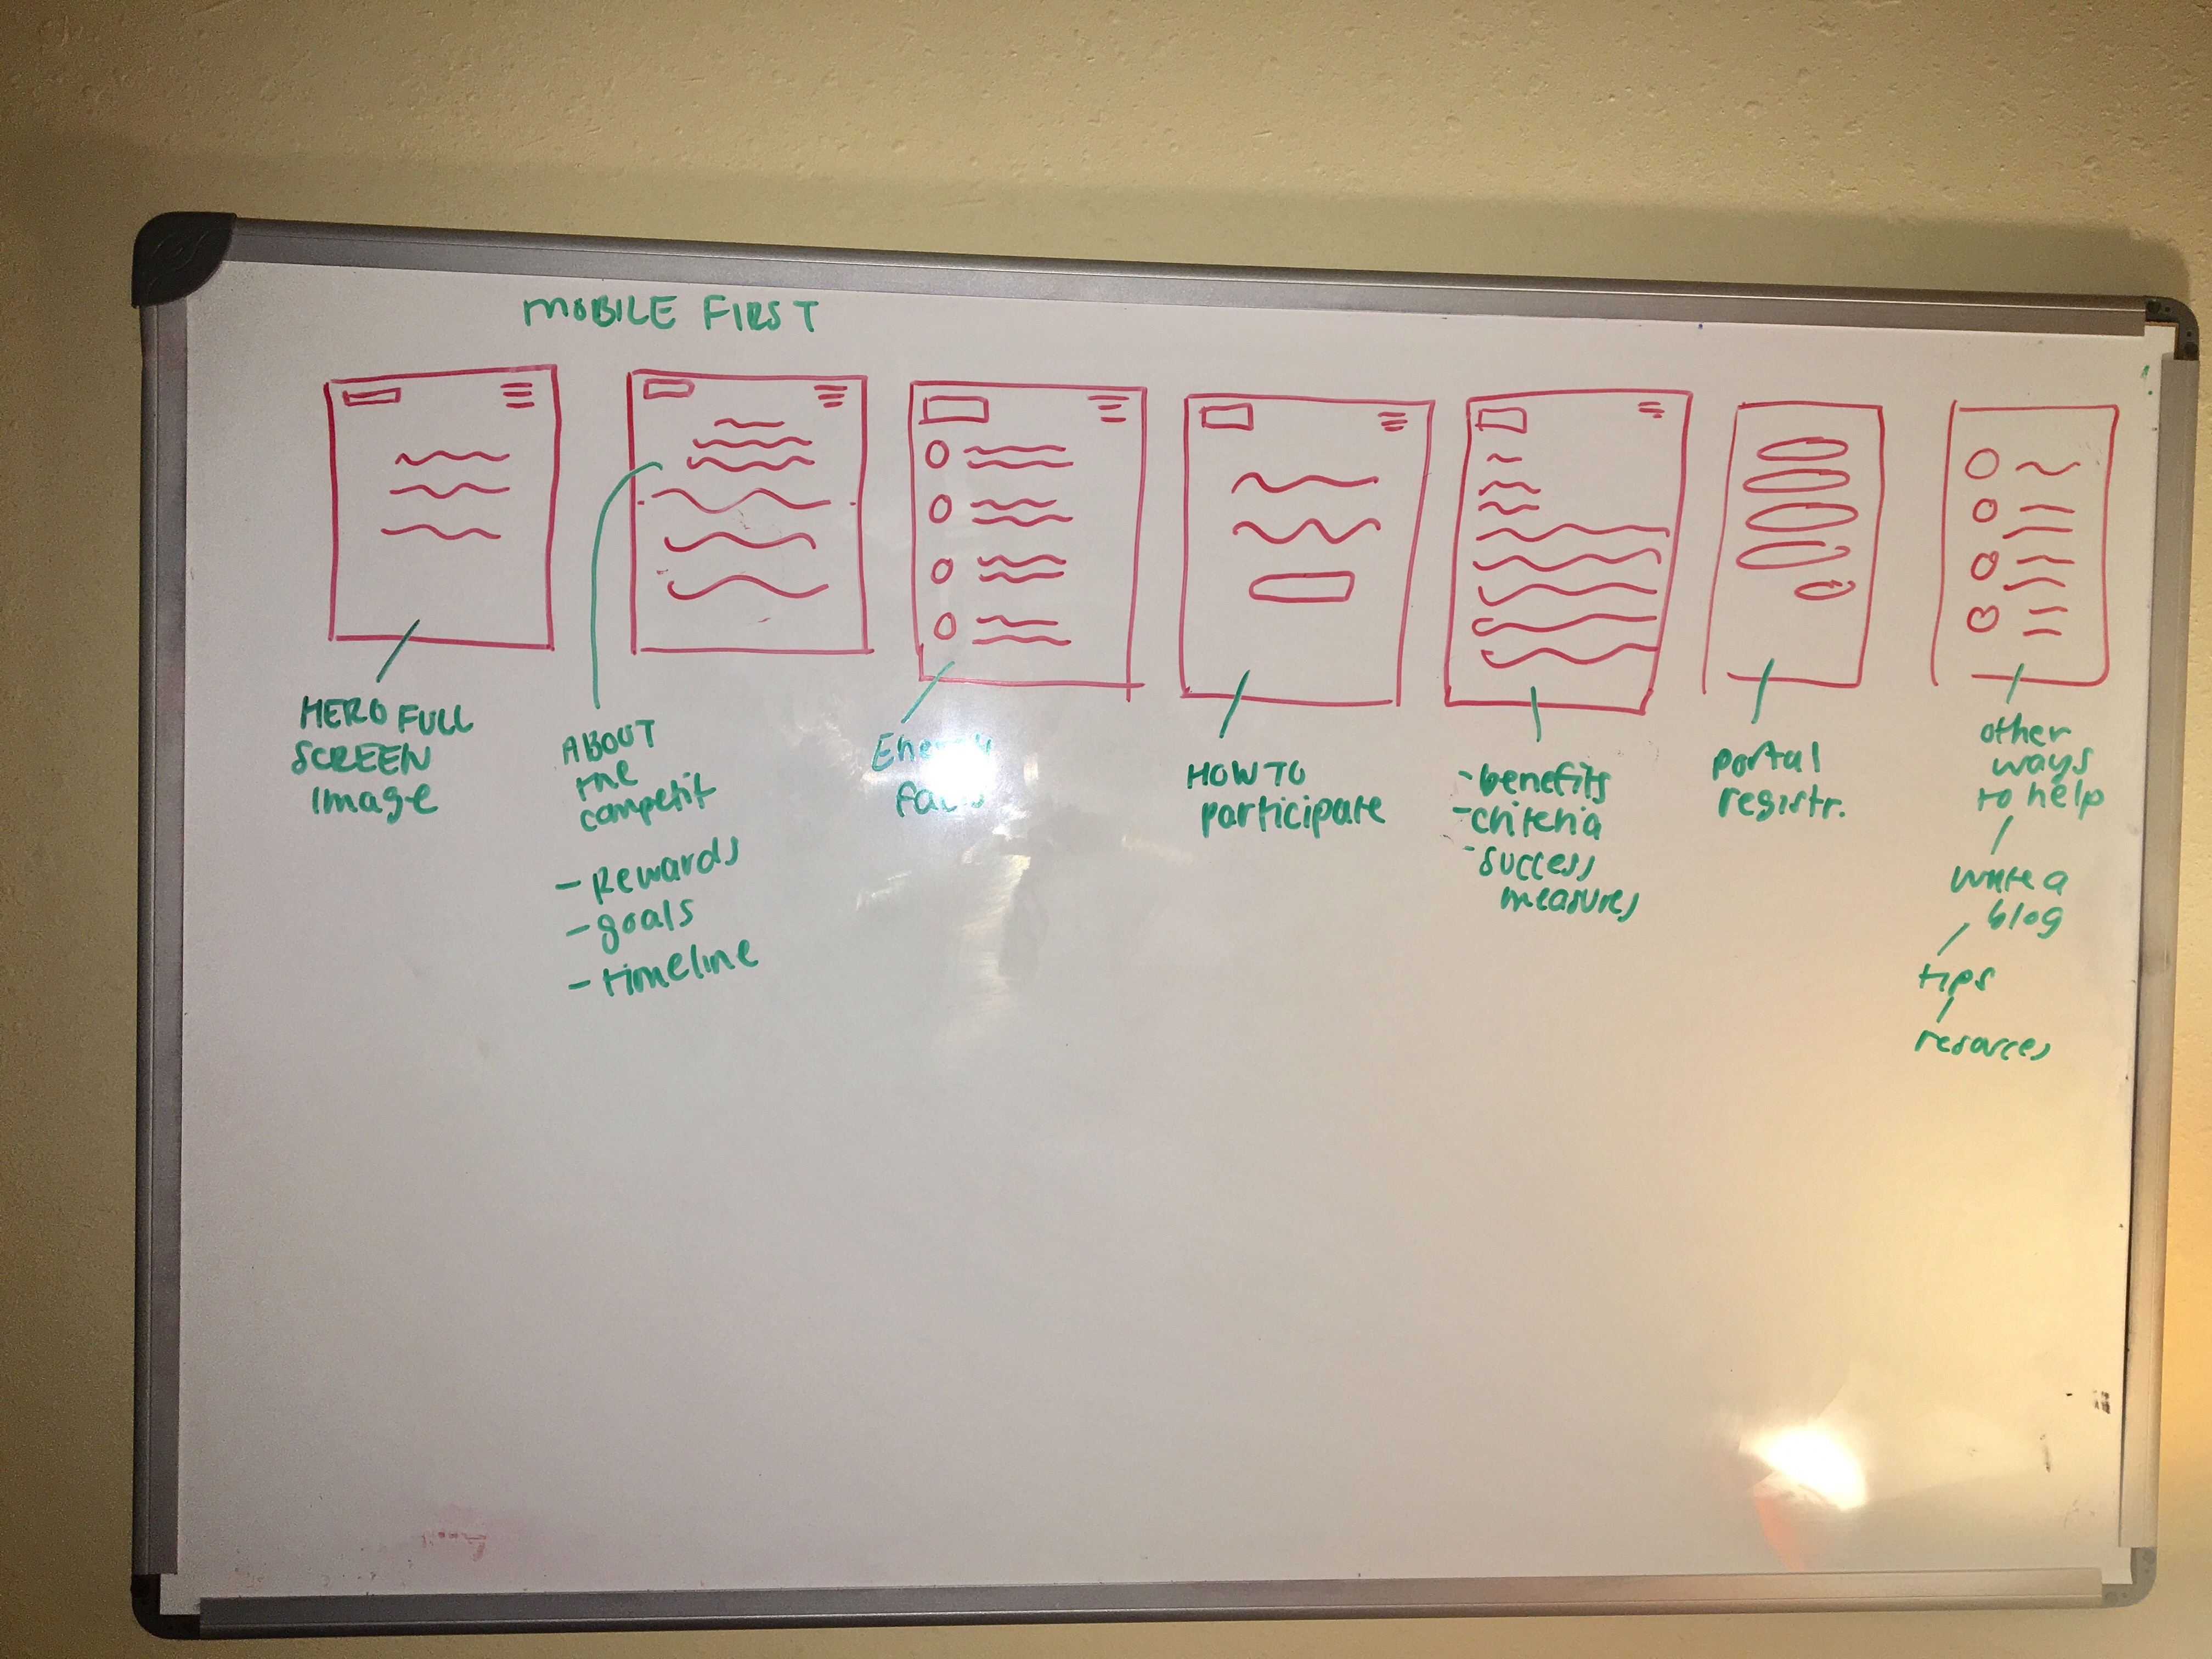 MOBILE FIRST
HERO FULL
SCREEN
Image
ABOUT
the
competit
- Rewards
- goals
- timeline
HOW TO
participate
- benefits
- criteria
- success
measures
portal
registr.
other
ways
to help
write a
blog
tips
resources